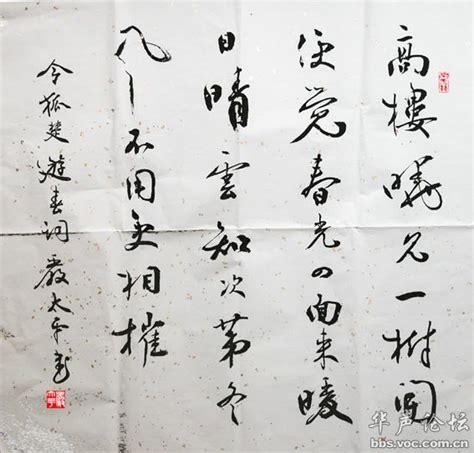 高樓曉见一树開
便觉春光四面来暖
日晴雲知次第冬
风不用更相摧
令狐楚遊春词 嚴太平书
华声论坛
bbs.voc.com.cn